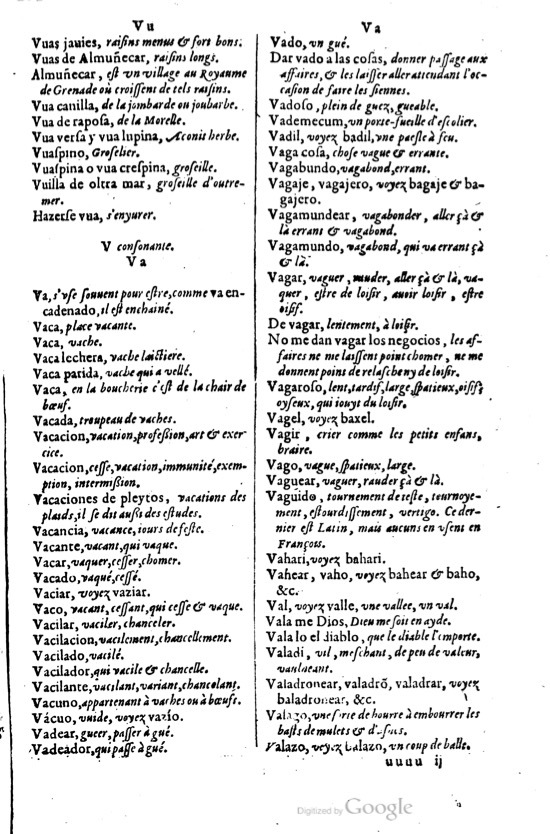 Vu
Vuas jauies, raiſins menus & fort bons.
Vuas de Almuñecar, raiſins longs.
Almuñecar, eſt vn village au Royaume
de Grenade où croiſſent de tels raiſins.
Vua canilla, de la jombarde ou joubarbe.
Vua de rapoſa, de la Morelle.
Vua verſa y vua lupina, Aconit herbe.
Vuaſpino, Groſelier.
Vuaſpina o vua creſpina, groſeille.
Vuilla de oltra mar, groſeille d'outre-
mer.
Hazerſe vua, s'enyurer.
V conſonante.
Va
Va, s'vſe ſouuent pour eſtre, comme va en-
cadenado, il eſt enchainé.
Vaca, place vacante.
Vaca, vache.
Vaca lechera, vache laictiere.
Vaca parida, vache qui a vellé.
Vaca, en la boucherie c'eſt de la chair de
bœuf.
Vacada, troupeau de vaches.
Vacacion, vacation, profeſsion, art & exer-
cice.
Vacacion, ceſſe, vacation, immunité, exem-
ption, intermiſsion.
Vacaciones de pleytos, vacations des
plaids, il ſe dit auſsi des eſtudes.
Vacancia, vacance, iours de feſte.
Vacante, vacant, qui vaque.
Vacar, vaquer, ceſſer, chomer.
Vacado, vaqué, ceſſé.
Vaciar, voyez vaziar.
Vaco, vacant, ceſſant, qui ceſſe & vaque.
Vacilar, vaciler, chanceler.
Vacilacion, vacilement, chancellement.
Vacilado, vacilé.
Vacilador, qui vacile & chancelle.
Vacilante, vacilant, variant, chancelant.
Vacuno, appartenant à vaches ou à bœufs.
Vácuo, vuide, voyez vazío.
Vadear, gueer, paſſer à gué.
Vadeador, qui paſſe à gué.
Va
Vado, vn gué.
Dar vado a las coſas, donner paſſage aux
affaires, & les laiſſer aller attendant l'oc-
caſion de faire les ſiennes.
Vadoſo, plein de guez, gueable.
Vademecum, vn porte-fueille d'eſcolier.
Vadil, voyez badil, vne paeſle à feu.
Vaga coſa, choſe vague & errante.
Vagabundo, vagabond, errant.
Vagaje, vagajero, voyez bagaje & ba-
gajero.
Vagamundear, vagabonder, aller çà &
là errant & vagabond.
Vagamundo, vagabond, qui va errant çà
& là.
Vagar, vaguer, rauder, aller çà & là, va-
quer, eſtre de loiſir, auoir loiſir, eſtre
oiſif.
De vagar, lentement, à loiſir.
No me dan vagar los negocios, les af-
faires ne me laiſſent point chomer, ne me
donnent point de relaſche ny de loiſir.
Vagaroſo, lent, tardif, large, ſpatieux, oiſif,
oyſeux, qui iouyt du loiſir.
Vagel, voyez baxel.
Vagir, crier comme les petits enfans,
braire.
Vago, vague, ſpatieux, large.
Vaguear, vaguer, rauder çà & là.
Vaguido, tournement de teſte, tournoye-
ment, eſtourdiſſement, vertigo. Ce der-
nier eſt Latin, mais aucuns en vſent en
François.
Vahari, voyez bahari.
Vahear, vaho, voyez bahear & baho,
&c.
Val, voyez valle, vne vallee, un val.
Vala me Dios, Dieu me ſoit en ayde.
Vala lo el diablo, que le diable l'emporte.
Valadí, vil, meſchant, de peu de valeur,
vauneant.
Valadronear, valadrō, valadrar, voyez
baladronear, &c.
Valazo, vne ſorte de bourre à embourrer les
baſts de mulets & d'aſnes.
Valazo, voyez balazo, vn coup de balle.
uuuu ij
Digitized by Google